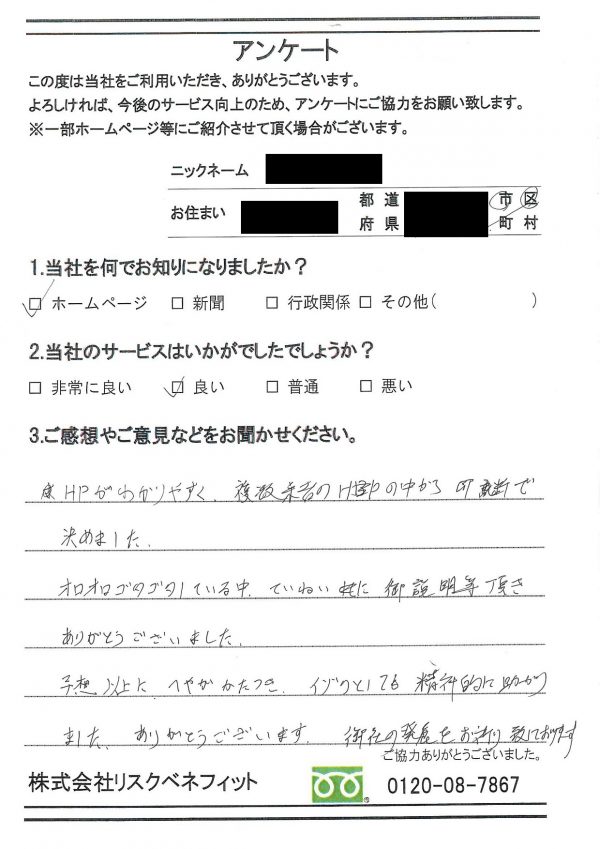 アンケート
この度は当社をご利用いただき、ありがとうございます。
よろしければ、今後のサービス向上のため、アンケートにご協力をお願い致します。
※一部ホームページ等にご紹介させて頂く場合がございます。
ニックネーム
お住まい 都道府県 市区町村
1.当社を何でお知りになりましたか？
☑ ホームページ □ 新聞 □ 行政関係 □ その他( )
2.当社のサービスはいかがでしたでしょうか？
□ 非常に良い ☑ 良い □ 普通 □ 悪い
3.ご感想やご意見などをお聞かせください。
HPがわかりやすく、複数業者のHPの中から 断で
決めました。
オロオロゴタゴタしている中、ていねいに御説明等頂き
ありがとうございました。
予想以上に へやがかたつき、イゾクとしても精神的に助かり
ました。ありがとうございます。御社の発展をお祈り致しております
ご協力ありがとうございました。
株式会社リスクベネフィット 0120-08-7867